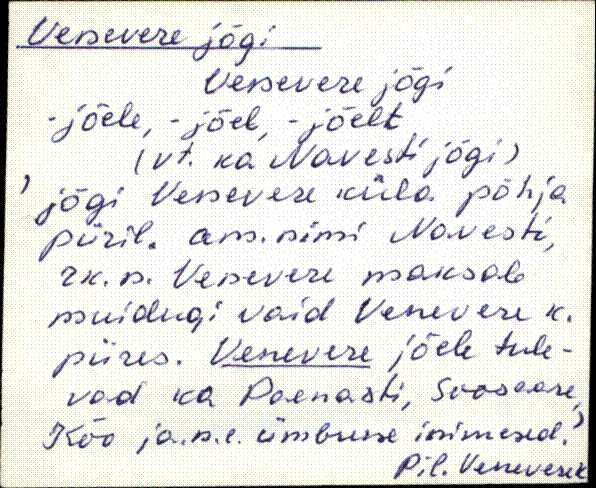 Venevere jõgi
Venevere jõgi
-jõele, -jõel, -jõelt
(vt. ka Navesti jõgi)
' jõgi Venevere küla põhja
piiril. am. nimi Navesti,
rk. n. Venevere maksab
muidugi vaid Venevere k.
piires. Venevere jõele tule-
vad ka Paenasti, Soosaare,
Kõo ja.n.e. ümbruse inimesed.'
Pil. Venevere k